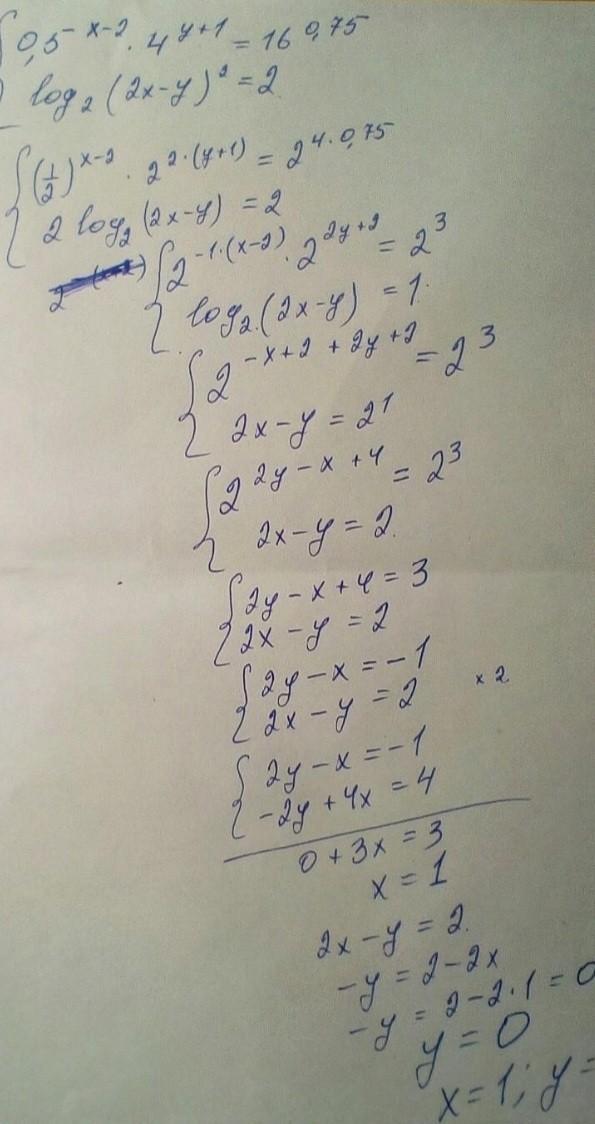 { 0,5^{-x-2} · 4^{y+1} = 16^{0,75}
log₂ (2x-y)² = 2
{ (1/2)^{x-2} · 2^{2·(y+1)} = 2^{4·0,75}
2 log₂ (2x-y) = 2
{ 2^{-1·(x-2)} · 2^{2y+2} = 2³
log₂ (2x-y) = 1
{ 2^{-x+2+2y+2} = 2³
2x-y = 2¹
{ 2^{2y-x+4} = 2³
2x-y = 2
{ 2y-x+4 = 3
2x-y = 2
{ 2y-x = -1
2x-y = 2 ×2
{ 2y-x = -1
-2y+4x = 4
0+3x = 3
x = 1
2x-y = 2
-y = 2-2x
-y = 2-2·1 = 0
y = 0
x=1; y=